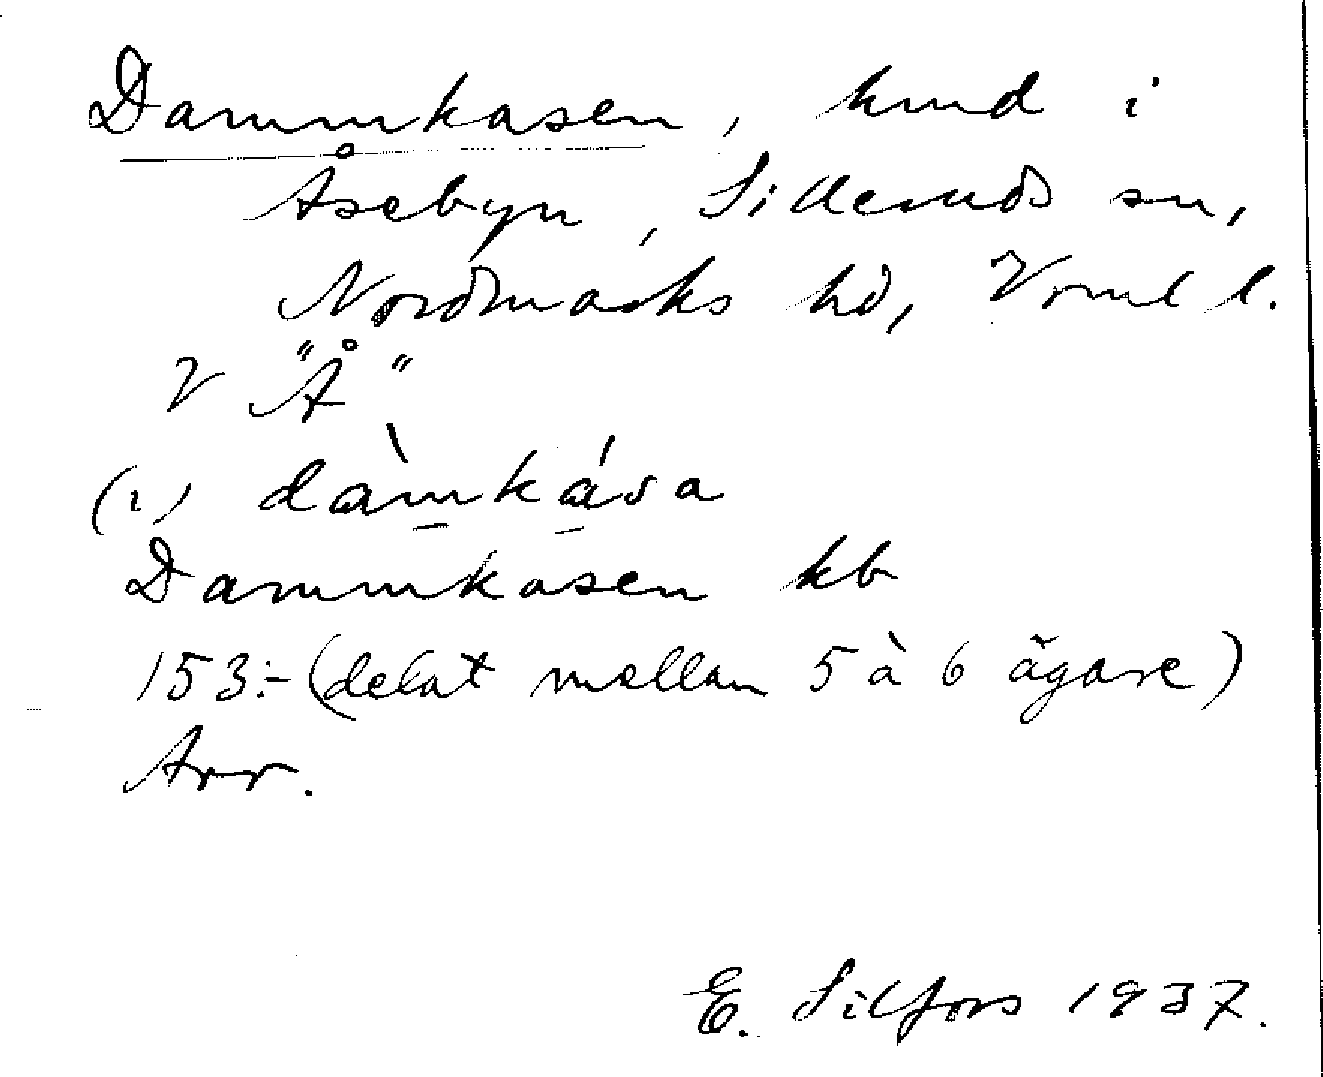 Dammkasen, hmd i
Åsebyn, Silleruds sn,
Nordmarks hd, Vrml l.
V "Å"
(i) dàmkása
Dammkasen kb
153:- (delat mellan 5 à 6 ägare)
Arr.
E. Silfors 1937.